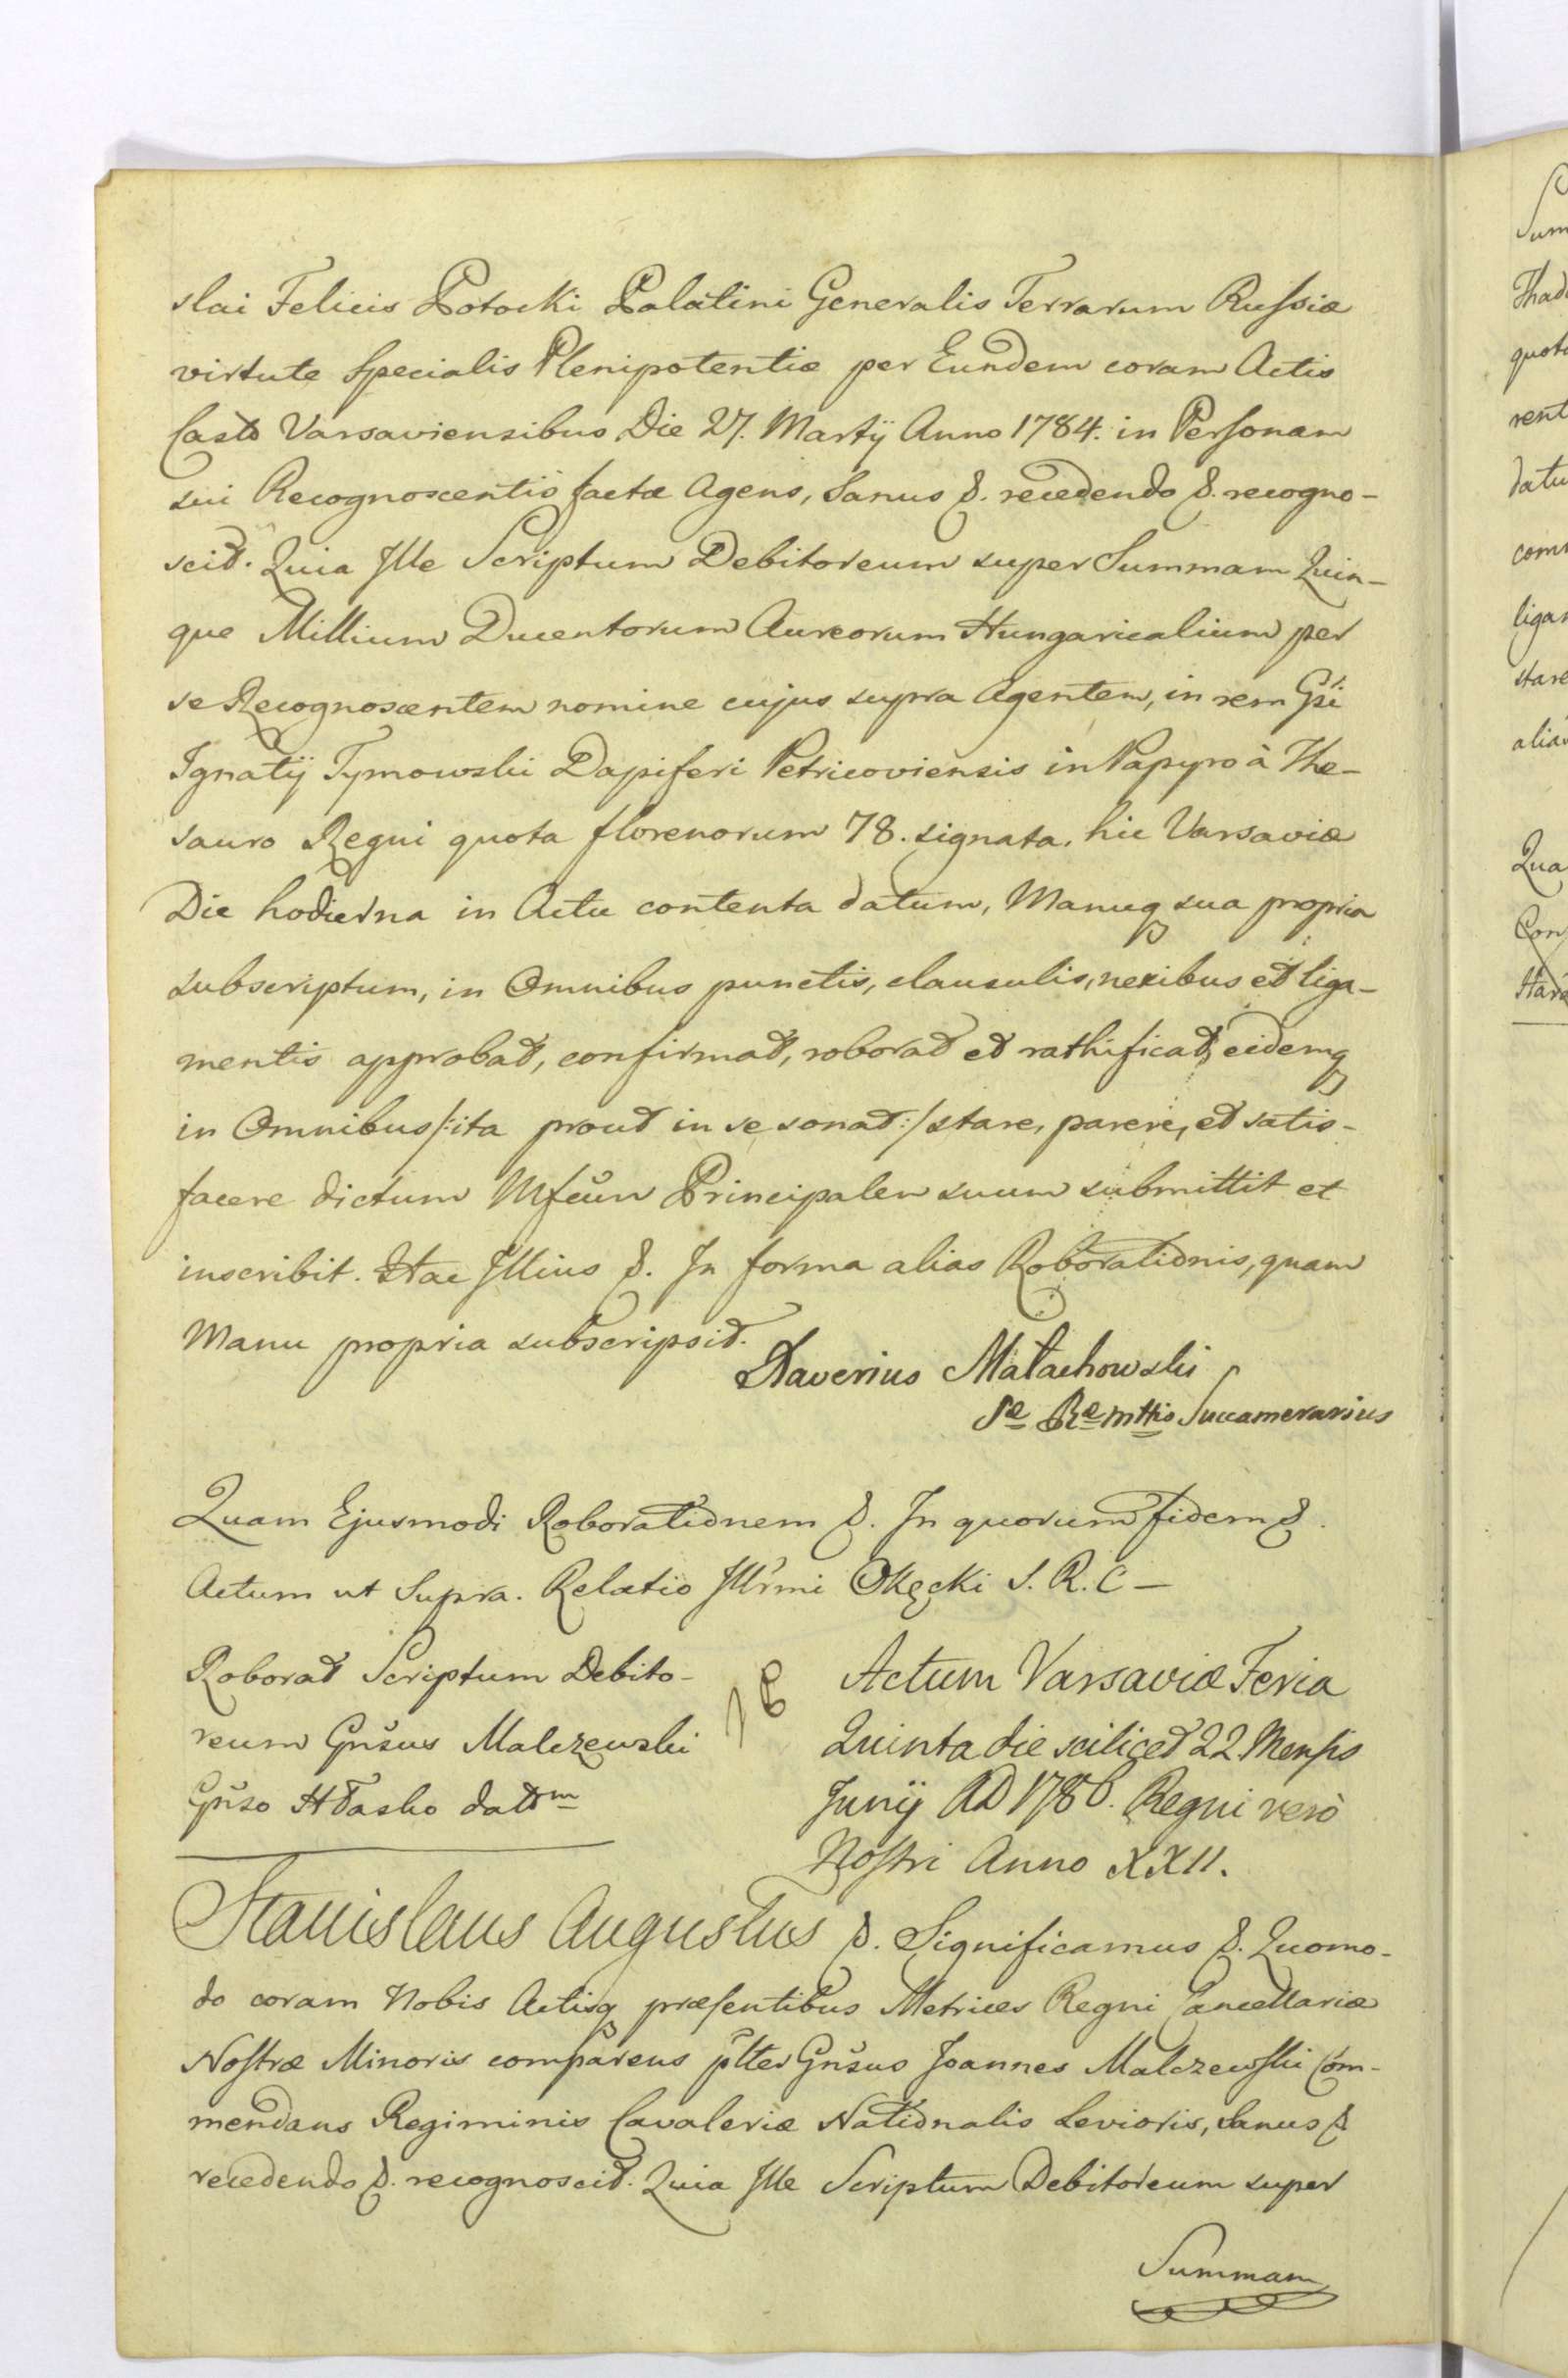 slai Felicis Potocki Palatini Generalis Terrarum Russiæ
virtute Specialis Plenipotentiæ per Eundem coram Actis
Castr Varsaviensibus Die 27. Martij Anno 1784. in Personam
sui Recognoscentis factæ Agens, Sanus &. recedendo &. recogno-
scit. Quia Ille Scriptum Debitoreum super Summam Quin-
que Millium Ducentorum Aureorum Hungaricalium per
se Recognoscentem nomine cujus supra Agentem, in rem Gsi
Ignatij Tymowski Dapiferi Petricoviensis in Papyro à The-
sauro Regni quota florenorum 78. signata, hic Varsaviæ
Die hodierna in Actu contenta datum, Manuq sua propria
subscriptum, in Omnibus punctis, clausulis, nexibus et liga-
mentis approbat, confirmat, roborat et rathificat, eidemq
in Omnibus /:ita prout in se sonat:/ stare, parere, et satis-
facere dictum Mfcum Principalem suum submittit et
inscribit. Hac Illius &. In forma alias Roborationis, quam
Manu propria subscripsit.
Xaverius Małachowski
Sæ Ræ Mttis Succamerarius
Quam Ejusmodi Roborationem &. In quorum fidem &.
Actum ut Supra. Relatio Illrmi Okęcki S. R. C —
Roborat Scriptum Debito-
reum Gnsus Malczewski
Gnso Hłasko dattm
Actum Varsaviæ Feria
Quinta die scilicet 22 Mensis
Junij AD 1786. Regni verò
Nostri Anno XXII.
Stanislaus Augustus &. Significamus &. Quomo-
do coram Nobis Actisq præsentibus Metrices Regni Cancellariæ
Nostræ Minoris comparens pltter Gnsus Joannes Malczewski Com-
mendans Regiminis Cavaleriæ Nationalis Levioris, Sanus &
recedendo &. recognoscit. Quia Ille Scriptum Debitoreum super
Summam